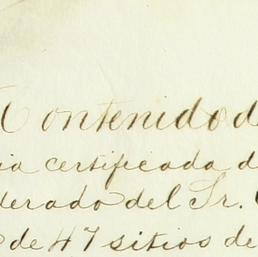 Contenido de
ia certificada d
derado del Sr.
de 47 sitios de